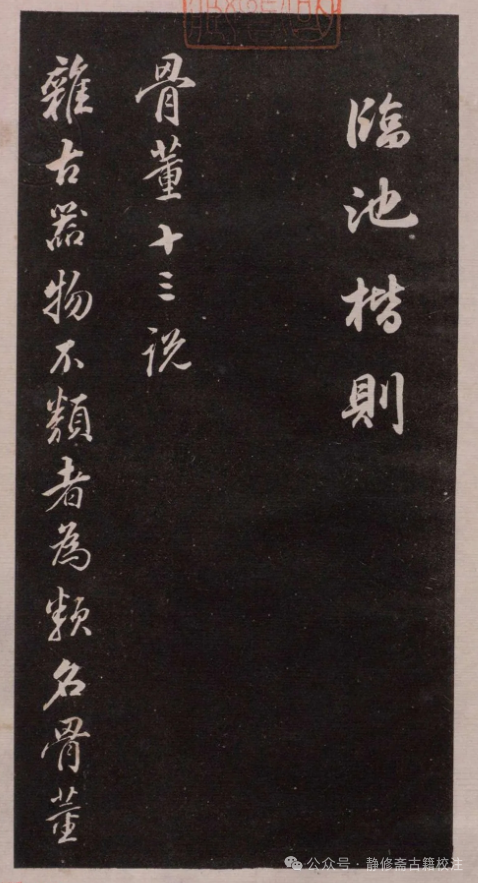 臨池楷則
骨董十三说
雜古器物不類者為類名骨董
公众号·静修斋古籍校注